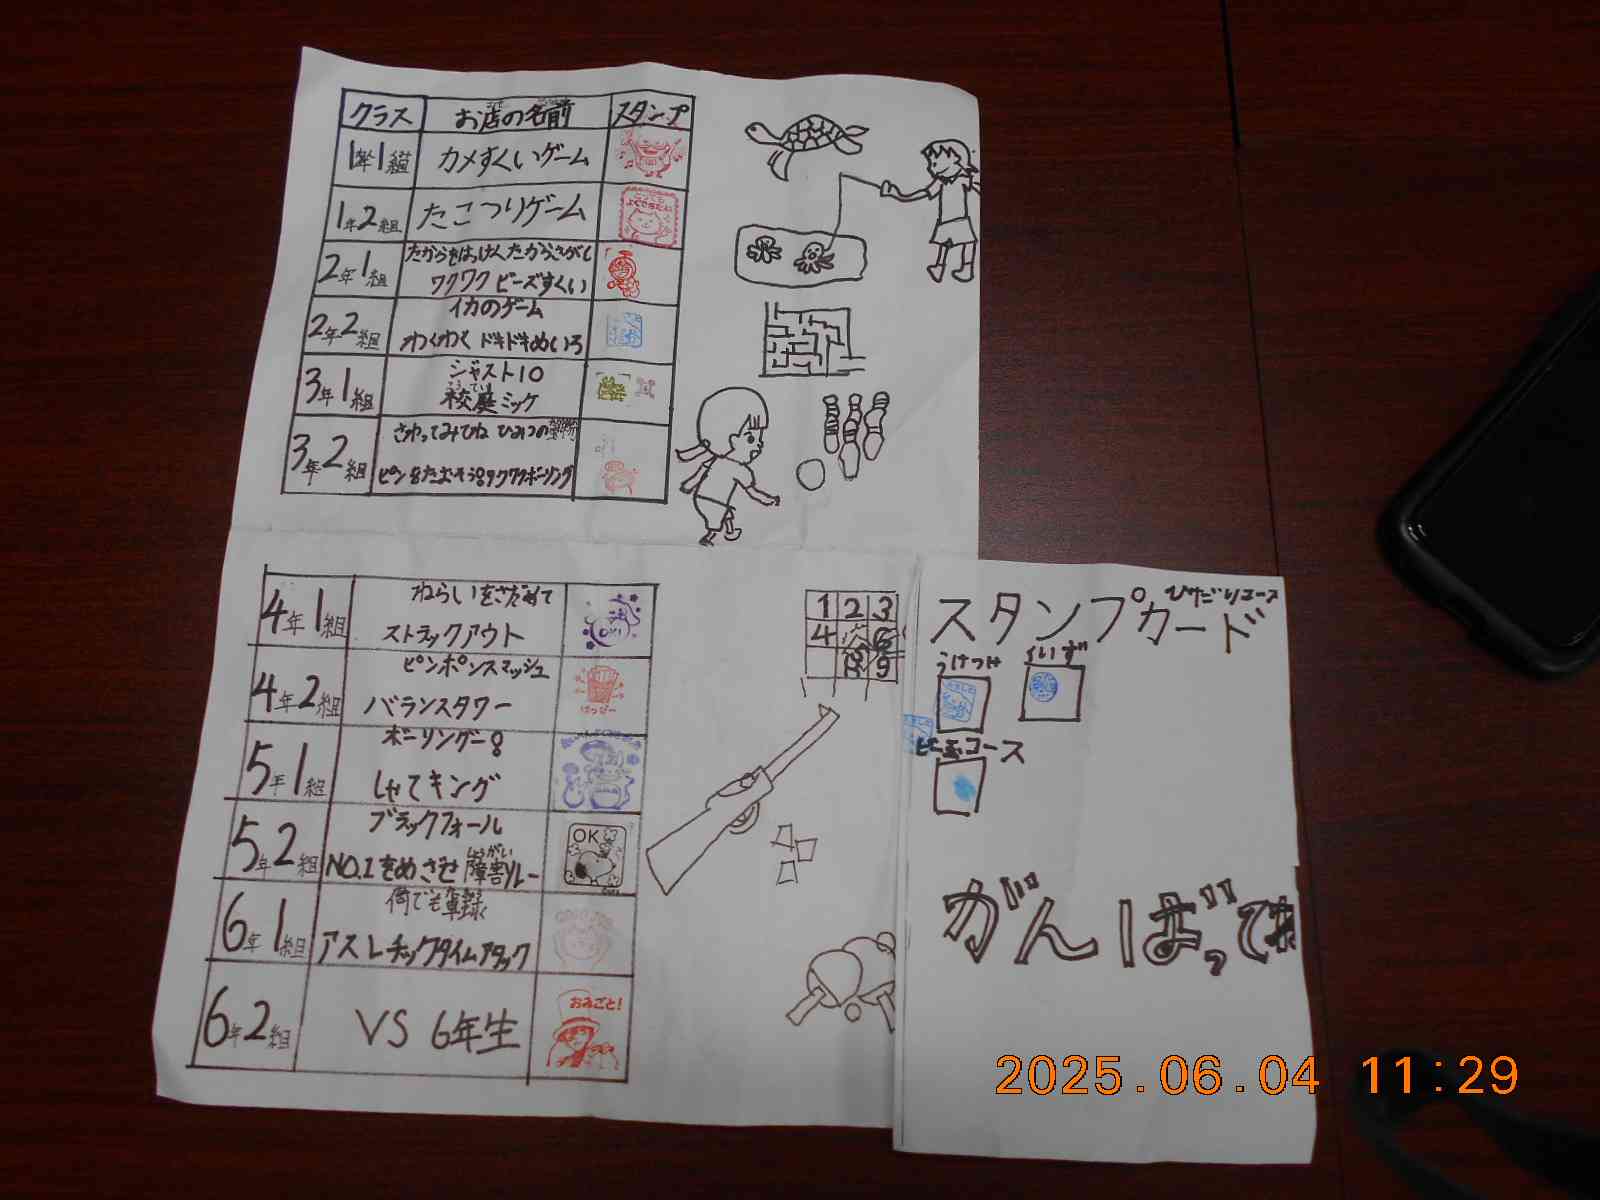 クラス お店の名前 スタンプ
1年1組 カメすくいゲーム
1年2組 たこつりゲーム
とっても
よくできました
2年1組 たからをはっけんたからさがし
ワクワクビーズすくい
2年2組 イカのゲーム
わくわくドキドキめいろ
3年1組 ジャスト10
こうてい
校庭ミッケ
3年2組 さわってみてね ひみつの
ピンをたおそう!ワクワクボーリング
4年1組 ねらいをさだめて
ストラックアウト
4年2組 ピンポンスマッシュ
バランスタワー
はっぴー
5年1組 ボーリング
しゃてキング
5年2組 ブラックフォール
しょうがい
NO.1をめざせ障害リレー
OK
6年1組 何でも
アスレチックタイムアタック
6年2組 VS 6年生
おみごと!
1 2 3
4 6
8 9
スタンプカード
うけつけ くいず
ビー玉コース
がんばってね
2025.06.04 11:29